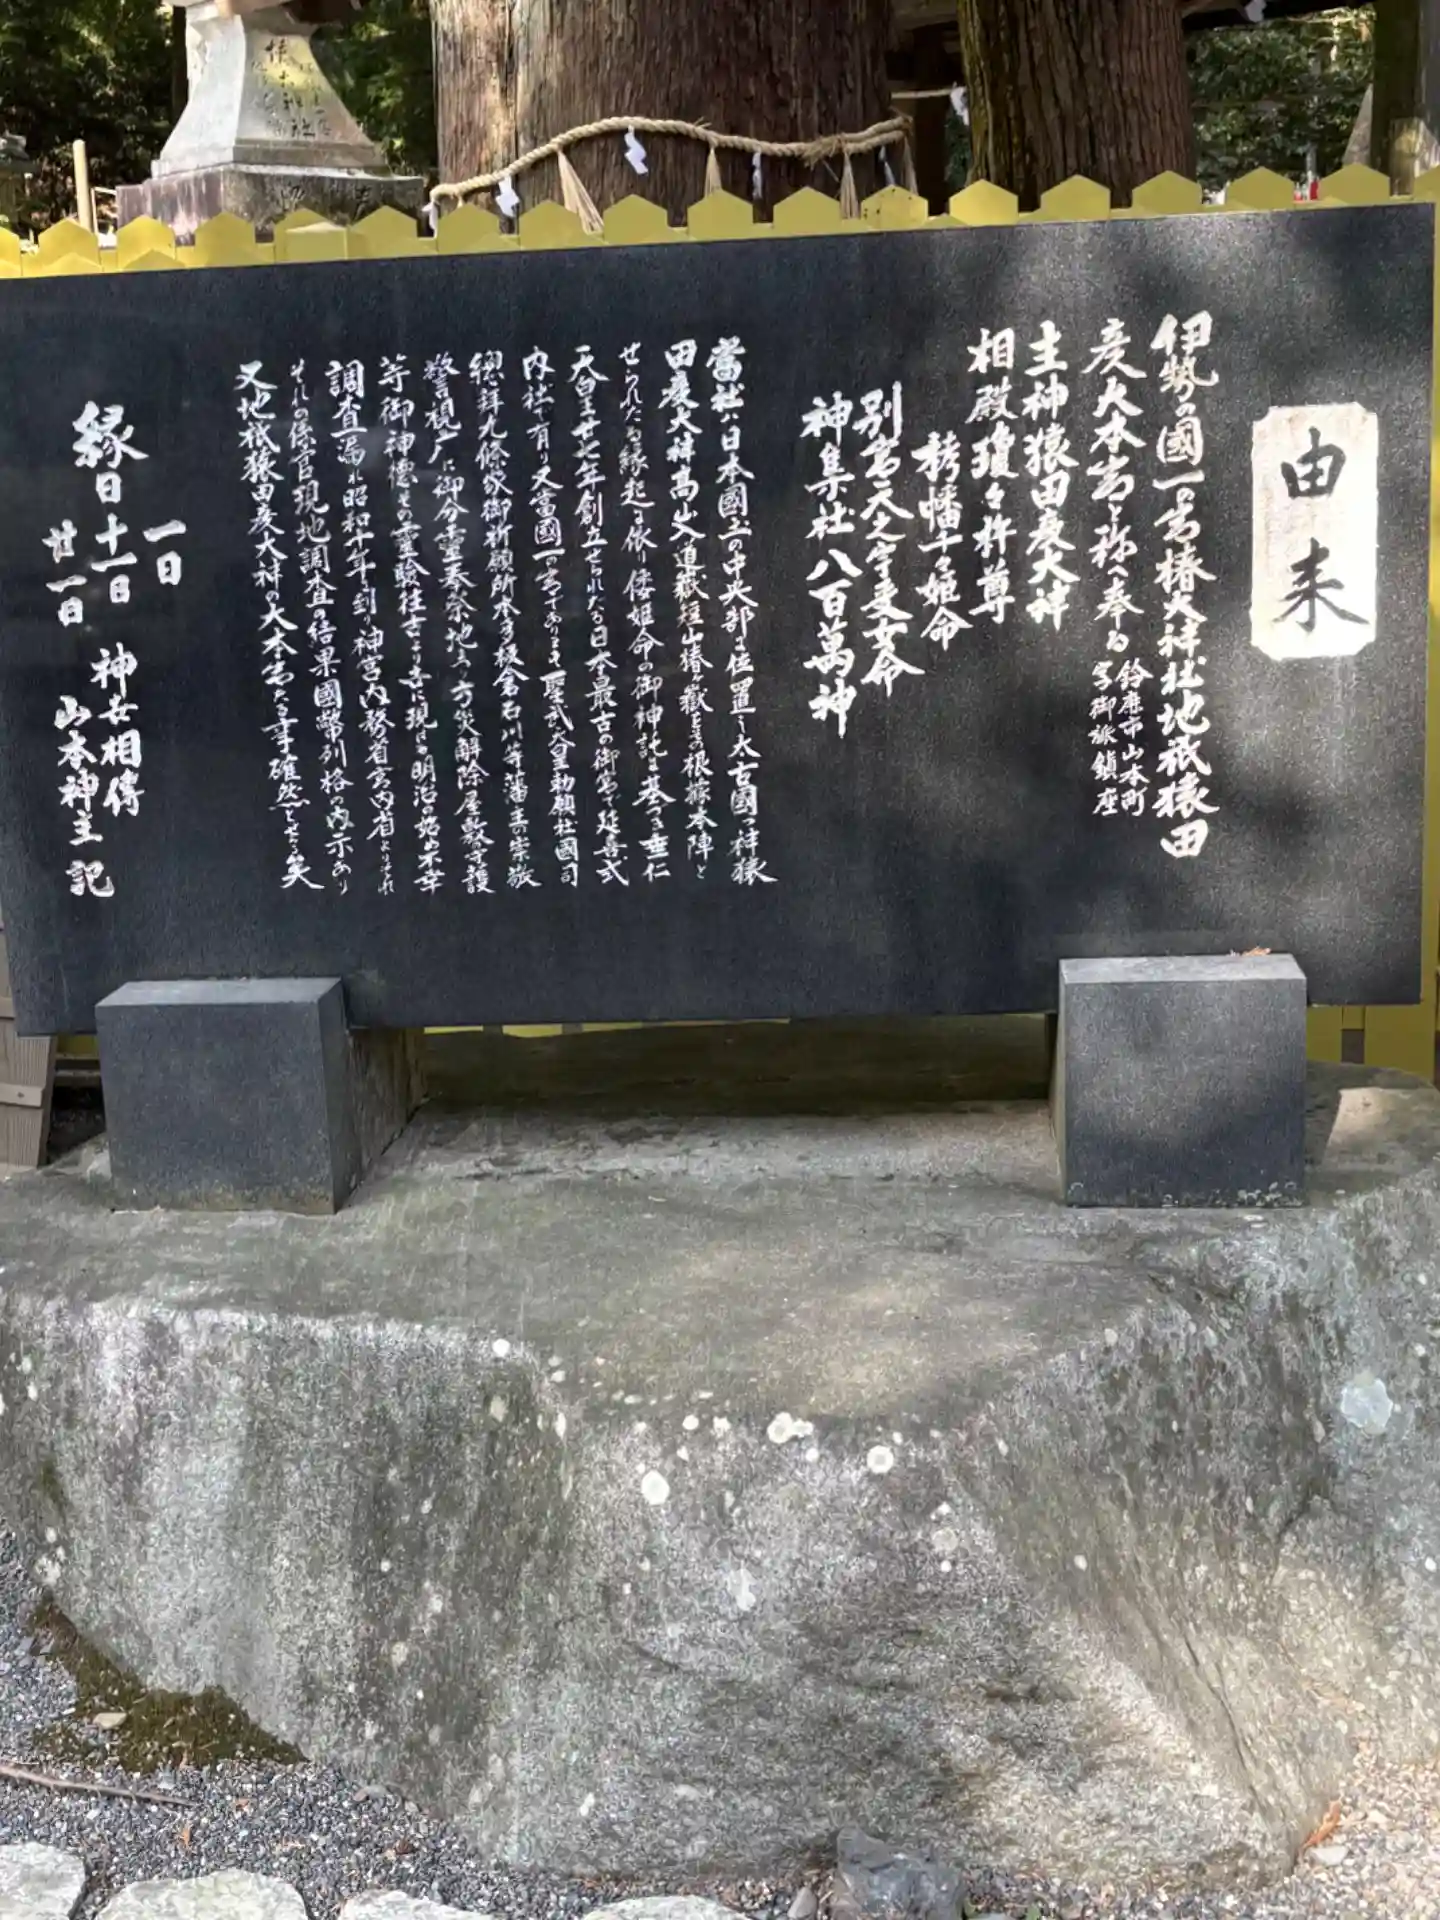 由来
伊勢の國一の宮椿大神社地祇猿田
彦大本宮と称へ奉る 鈴鹿市山本町
弓御旅鎮座
主神猿田彦大神
相殿瓊々杵尊
栲幡千々姫命
別宮天之宇受女命
神集社八百萬神
當社ハ日本國土の中央部に位置し太古國つ神猿
田彦大神高山道嶽短山椿ヶ嶽を根本陣と
せられたる縁起に依り倭姫命の御神託に基つき垂仁
天皇廿七年創立せられたる日本最古の御宮で延喜式
内社で有り又當國一の宮であります聖武天皇勅願社國司
總拝九條家御祈願所本多板倉石川等藩主の崇敬
警視庁に御分霊奉祭地方災解除屋敷守護
等御神徳その霊験往古より幸に現はる明治の始め不幸
調査漏れ昭和十年に到り神宮内務省宮内省よりそれ
それの係官現地調査の結果國幣列格の内示あり
又地祇猿田彦大神の大本宮たる事確然とせり矣
一日
縁日 十一日 神世相傳
廿一日 山本神主 記